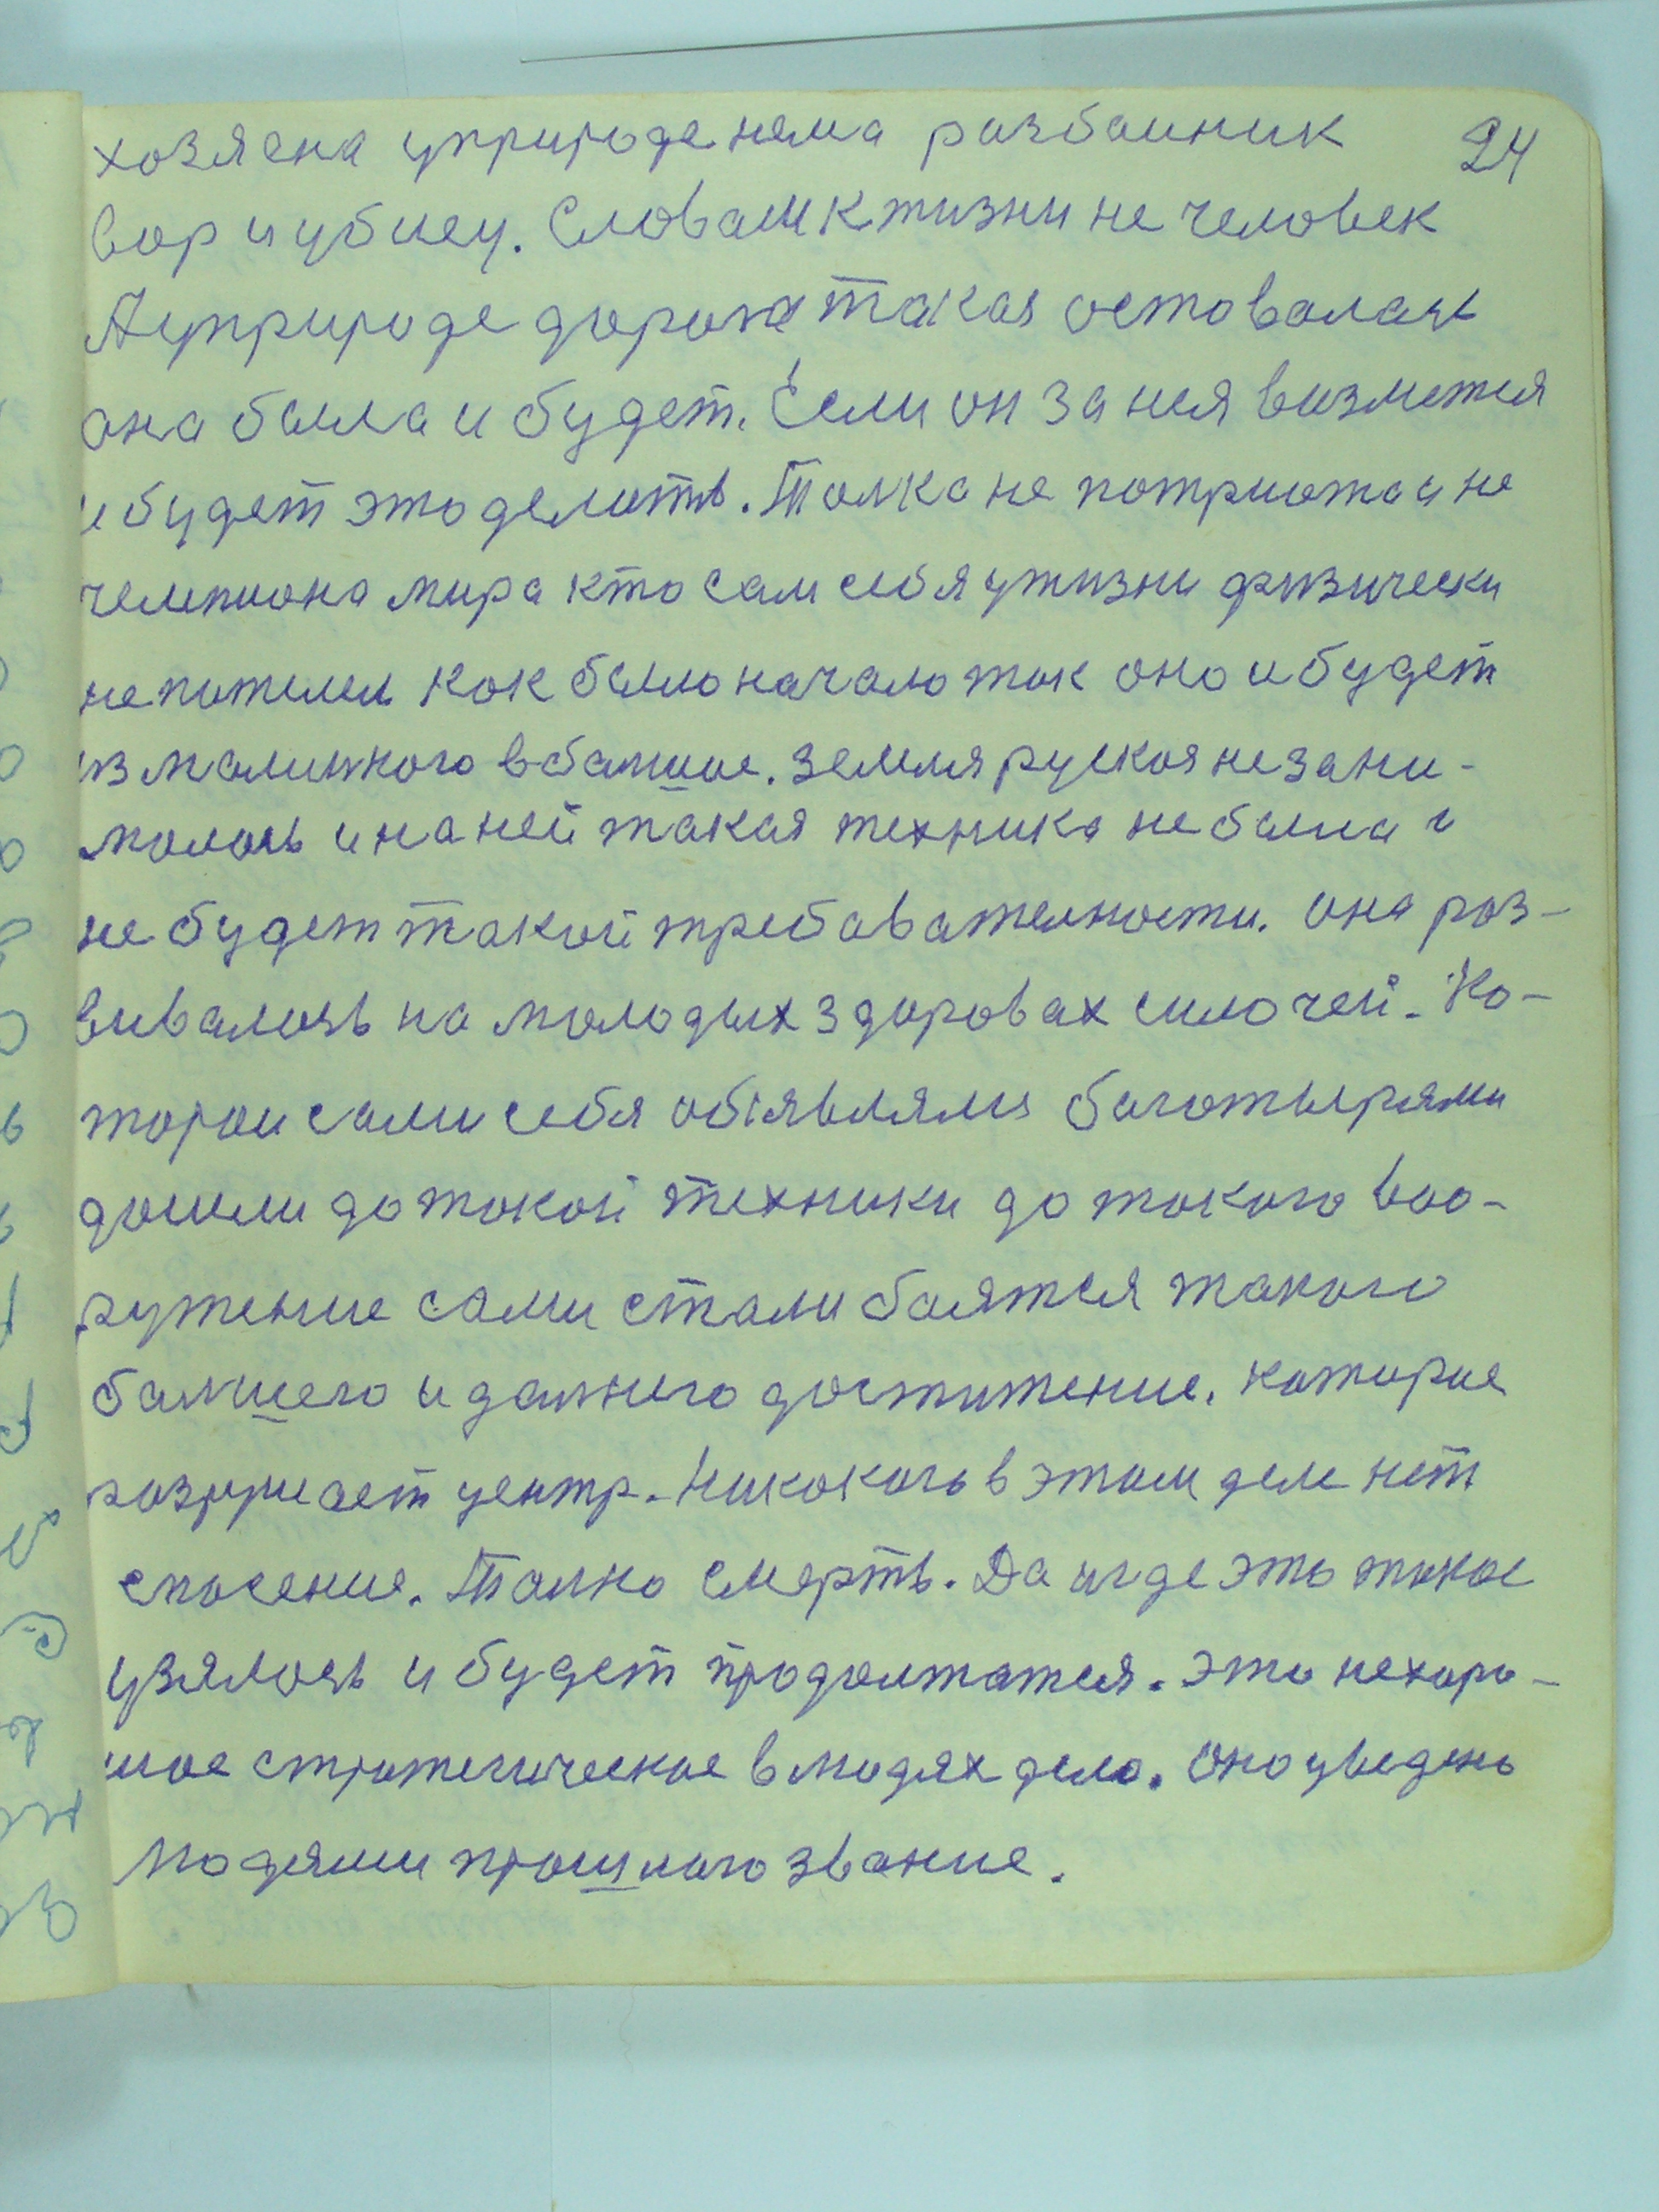 хозяена уприроде нема разбоиник 24
вор и убиец. Словам к жизни не человек
А уприроде дорога такая оставалась
она была и будет. Если он за нея визметея
и будет это делоть. Толка не потриота и не
чемпиона мира кто сам себя ужизни физически
не пожелел как было начало так оно и будет
из малинкого в болшое. Земля руская не зани-
молось и на ней такая техника не была и
не будет такой требавателности. Она роз-
вивалось на молодых здоровах силочей. Ко-
тораи сами себя обявляли богатырями
дошли до токой техники до такого воо-
ружение сами стали боятся такого
болшего и далнего достижение. каторае
разрушает центр. Никокогь в этом деле нет
спосение. Толко смерть. Да и где это такое
узялось и будет продолжатся. это нехоро-
шое стратегическое в людях дело. Оно уведено
людями прошлого звание.